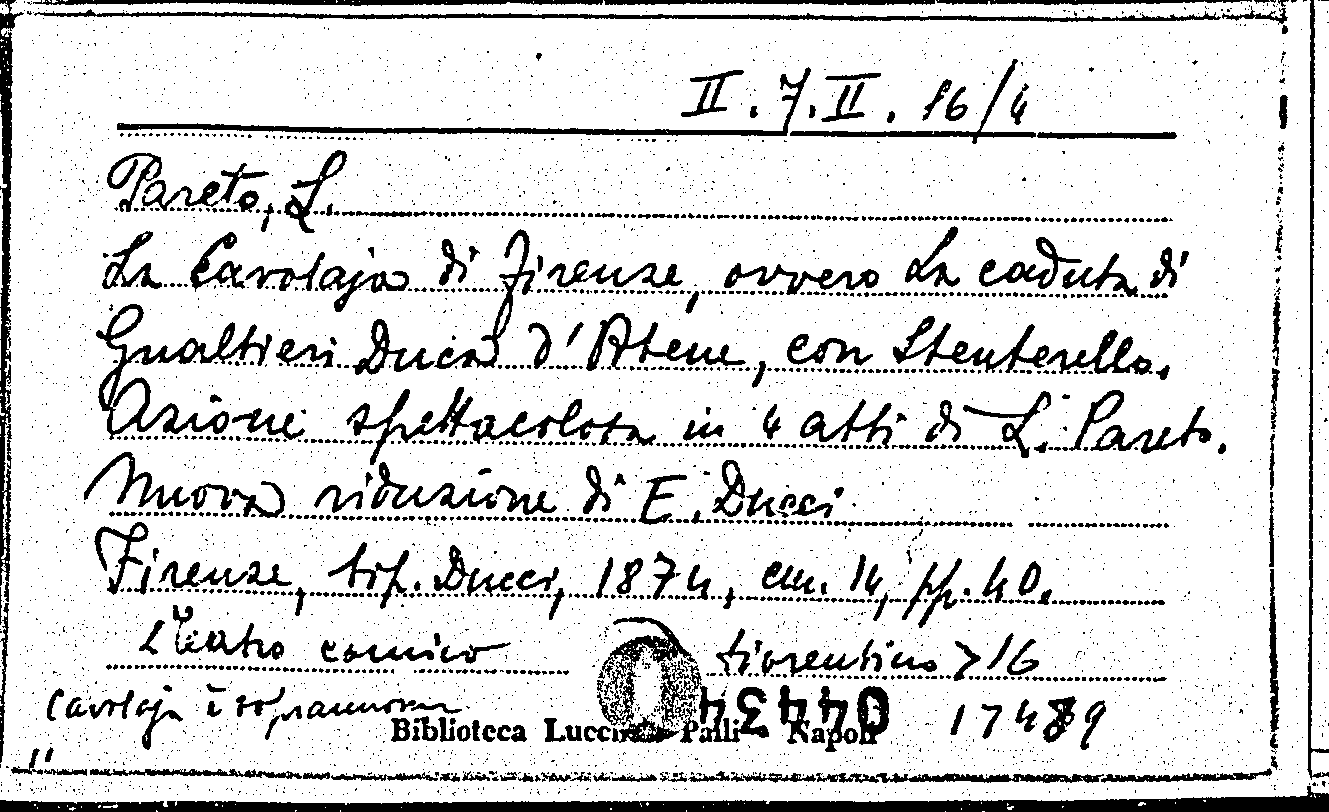 II. 7. II. 16/4
Pareto, L.
La Cavolaja di Firenze, ovvero La caduta di
Gualtieri Duca d'Atene, con Stenterello.
Azione spettacolosa in 4 atti di L. Pareto.
Nuova riduzione di E. Ducci
Firenze, tip. Ducci, 1874, cm. 14, pp. 40.
<Teatro comico fiorentino> 16
Cavolaja è soprannome
04434 17489
Biblioteca Lucchesi Palli Napoli